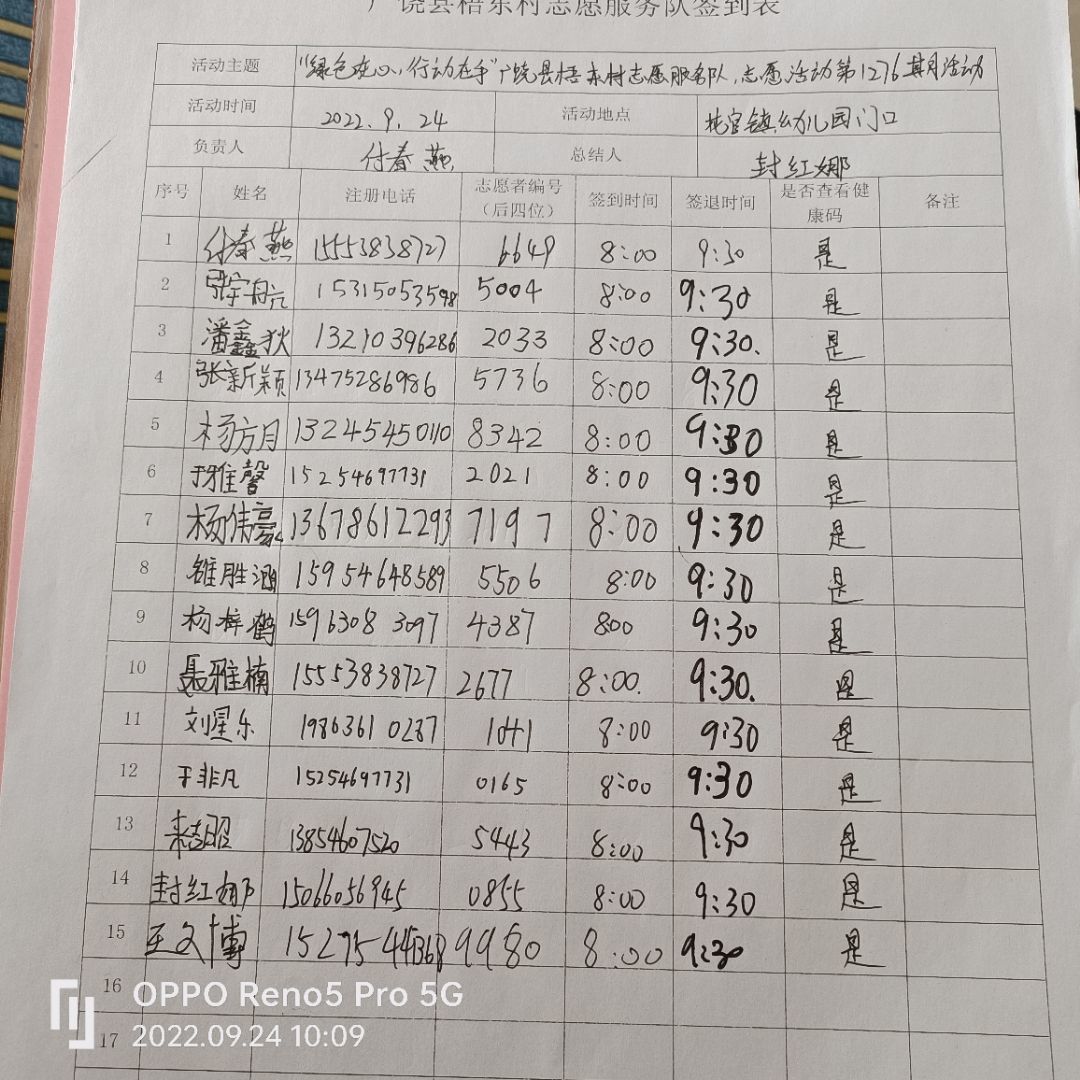 广饶县梧东村志愿服务队签到表
活动主题 "绿色在心,行动在手"广饶县梧东村志愿服务队,志愿活动第1276期活动
活动时间 2022.9.24 活动地点 花官镇幼儿园门口
负责人 付春燕 总结人 封红娜
序号 姓名 注册电话 志愿者编号(后四位) 签到时间 签退时间 是否查看健康码 备注
1 付春燕 15553838727 6649 8:00 9:30 是
2 15315053598 5004 8:00 9:30 是
3 潘鑫狄 13210396286 2033 8:00 9:30. 是
4 张新颖 13475286986 5736 8:00 9:30 是
5 杨方月 13245450110 8342 8:00 9:30 是
6 于雅馨 15254697731 2021 8:00 9:30 是
7 杨伟豪 13678612293 7197 8:00 9:30 是
8 雒胜涵 15954648589 5506 8:00 9:30 是
9 杨梓鹤 15963083097 4387 800 9:30 是
10 聂雅楠 15553838727 2677 8:00. 9:30. 是
11 刘星乐 19863610287 1041 8:00 9:30 是
12 于非凡 15254697731 0165 8:00 9:30 是
13 13854607520 5443 8:00 9:30 是
14 封红娜 15066056945 0855 8:00 9:30 是
15 王文博 15275441368 9980 8:00 9:30 是
16
17
OPPO Reno5 Pro 5G
2022.09.24 10:09